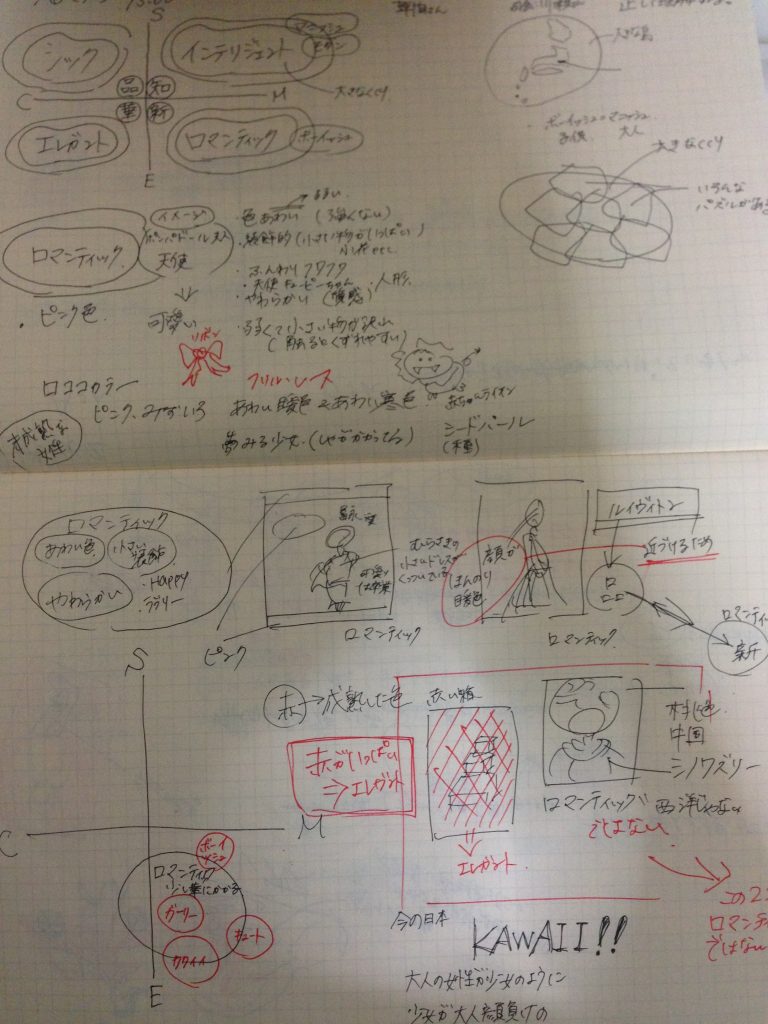 S
シック
インテリジェント
マニッシュ
モダン
品 知
華 新
C
M
大きなくくり
エレガント
ロマンティック
ボーイッシュ
E
大きな島
ボーイッシュ マニッシュ
子供 大人
大きなくくり
いろんな
パズルがある
ロマンティック
イメージ
ポンパドール夫人
天使
・ピンク色
可愛い
リボン
・色あわい (強くない)
・装飾的 (小さい物がいっぱい)
小花etc
・ふんわり フワフワ
・天使 キューピーちゃん
・人形
・やわらかい (質感)
・弱くて小さい物が沢山
(触るとくずれやすい)
ロココカラー
ピンク、みずいろ
フリル・レース
あわい暖色 & あわい寒色
夢みる少女
赤ちゃんライオン
シードパール
(種)
未成熟な
女性
ロマンティック
あわい色
小さい装飾
やわらかい
・HAPPY
・ラブリー
ピンク
むらさきの
小さいドレスが
くっついている
ロマンティック
顔が
ほんのり
暖色
ロマンティック
ルイヴィトン
近づけるため
ロマンティ
新
S
C
M
E
ボーイッシュ
ロマンティック
少し華にかかる
ガーリー
キュート
カワイイ
赤→成熟した色
赤がいっぱい
⇒エレガント
赤い箱
エレガント
桃色
中国
シノワズリー
西洋じゃない
ロマンティック
ではない
この2つ
ロマンテ
ではない
今の日本
KAWAII!!
大人の女性が少女のように
少女が大人顔負けの